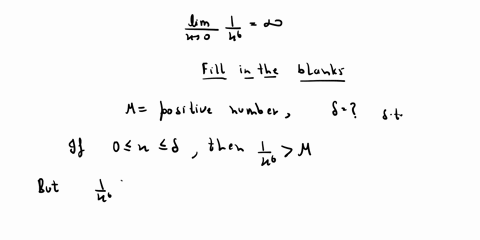 lim n→0 1/n⁶ = ∞
Fill in the blanks
M = positive number, δ = ? s.t.
If 0 ≤ n ≤ δ, then 1/n⁶ > M
But 1/n⁶